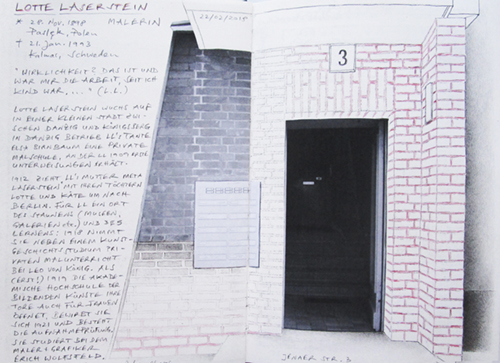 LOTTE LASERSTEIN
* 28. Nov. 1898 MALERIN
Polen
† 21. Jan. 1993
Kalmar, Schweden
"WIRKLICHKEIT? DAS IST UND
WAR MIR DIE ARBEIT, SEIT ICH
KIND WAR, ..." (L.L.)
LOTTE LASERSTEIN WUCHS AUF
IN EINER KLEINEN STADT ZWI-
SCHEN DANZIG UND KÖNIGSBERG
IN DANZIG BETRIEB LL'S TANTE
ELSA BIRNBAUM EINE PRIVATE
MALSCHULE, AN DER LL 1909 ERSTE
UNTERWEISUNGEN ERHÄLT.
1912 ZIEHT LL'S MUTTER META
LASERSTEIN MIT IHREN TÖCHTERN
LOTTE UND KÄTE UM NACH
BERLIN. FÜR LL EIN ORT
DES STAUNENS (MUSEEN,
GALERIEN etc.) UND DES
LERNENS: 1918 NIMMT
SIE NEBEN EINEM KUNST-
GESCHICHTSSTUDIUM PRI-
VATEN MALUNTERRICHT
BEI LEO VON KÖNIG. ALS
(ERST!) 1919 DIE AKADE-
MISCHE HOCHSCHULE DER
BILDENDEN KÜNSTE IHRE
TORE AUCH FÜR FRAUEN
ÖFFNET, BEWIRBT SIE
SICH 1921 UND BESTEHT
DIE AUFNAHMEPRÜFUNG.
SIE STUDIERT BEI DEM
MALER & GRAFIKER
ERICH WOLFSFELD.
22/02/2018
3
JENAER STR. 3